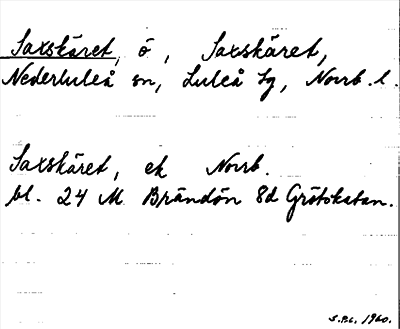 Saxskäret, ö, Saxskäret,
Nederluleå sn, Luleå lg, Norrb. l.
Saxskäret, ek Norrb.
bl. 24 M Brändön 8d Gråtskatan.
S.Bg. 1960.